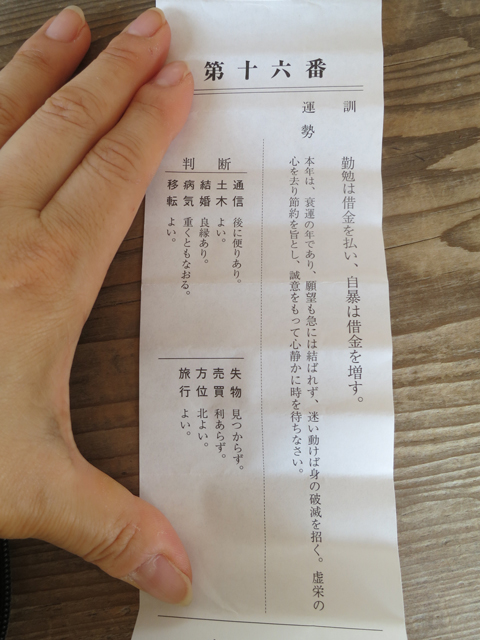 第十六番
訓 勤勉は借金を払い、自暴は借金を増す。
運勢
本年は、衰運の年であり、願望も急には結ばれず、迷い動けば身の破滅を招く。虚栄の
心を去り節約を旨とし、誠意をもって心静かに時を待ちなさい。
判断
通信 後に便りあり。
土木 よい。
結婚 良縁あり。
病気 重くともなおる。
移転 よい。
失物 見つからず。
売買 利あらず。
方位 北よい。
旅行 よい。